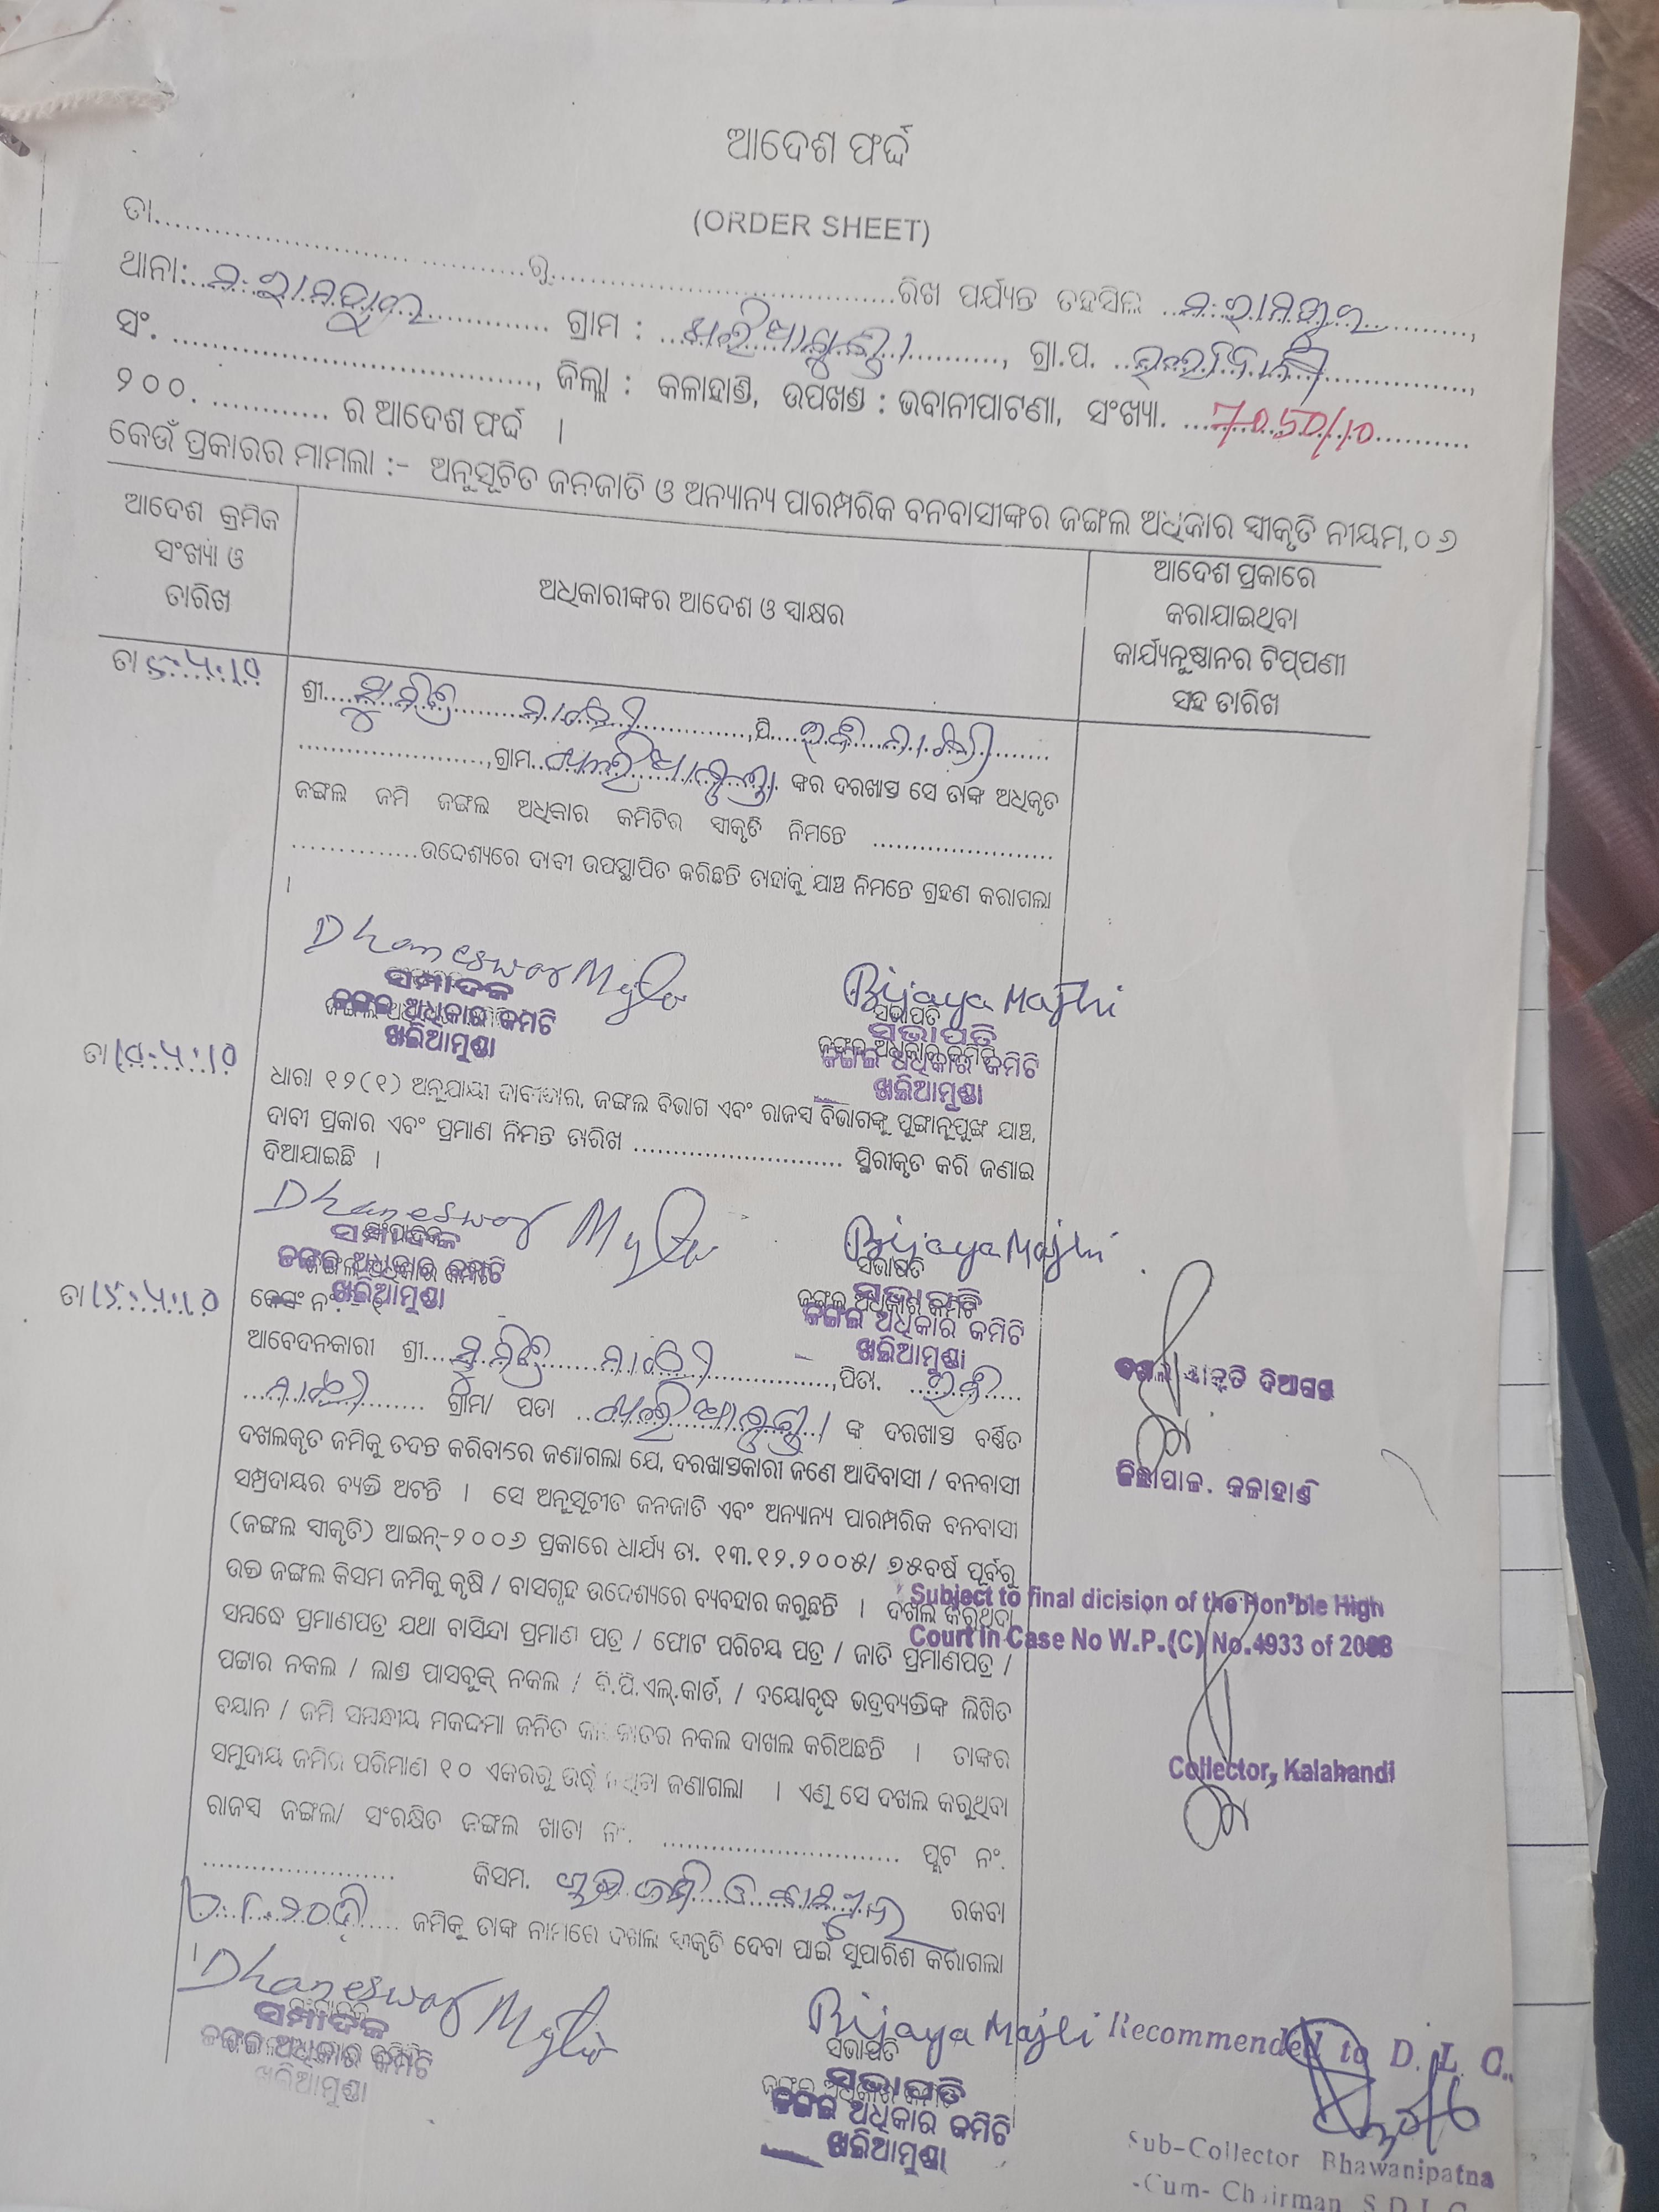 ଆଦେଶ ଫର୍ଦ୍ଦ
(ORDER SHEET)
ତା................ରୁ................ରିଖ ପର୍ଯ୍ୟନ୍ତ ତହସିଲ ମ.ରାମପୁର,
ଥାନା: ମ.ରାମପୁର ଗ୍ରାମ : ଖରିଆମୁଣ୍ଡା, ଗ୍ରା.ପ.
ସଂ. ................, ଜିଲ୍ଲା : କଳାହାଣ୍ଡି, ଉପଖଣ୍ଡ : ଭବାନୀପାଟଣା, ସଂଖ୍ୟା. 7050/10
୨୦୦. ............ ର ଆଦେଶ ଫର୍ଦ୍ଦ ।
କେଉଁ ପ୍ରକାରର ମାମଲା :- ଅନୁସୂଚିତ ଜନଜାତି ଓ ଅନ୍ୟାନ୍ୟ ପାରମ୍ପରିକ ବନବାସୀଙ୍କର ଜଙ୍ଗଲ ଅଧିକାର ସ୍ୱୀକୃତି ନୀୟମ,୦୬
ଆଦେଶ କ୍ରମିକ
ସଂଖ୍ୟା ଓ
ତାରିଖ
ଅଧିକାରୀଙ୍କର ଆଦେଶ ଓ ସ୍ୱାକ୍ଷର
ଆଦେଶ ପ୍ରକାରେ
କରାଯାଇଥିବା
କାର୍ଯ୍ୟନୁଷ୍ଠାନର ଟିପ୍ପଣୀ
ସହ ତାରିଖ
ତା ୫.୪.୧୦
ଶ୍ରୀ ମାଝୀ, ପି ମାଝୀ
................,ଗ୍ରାମ ଖରିଆମୁଣ୍ଡା ଙ୍କର ଦରଖାସ୍ତ ସେ ତାଙ୍କ ଅଧିକୃତ
ଜଙ୍ଗଲ ଜମି ଜଙ୍ଗଲ ଅଧିକାର କମିଟିର ସ୍ୱୀକୃତି ନିମନ୍ତେ ................
............ଉଦ୍ଦେଶ୍ୟରେ ଦାବୀ ଉପସ୍ଥାପିତ କରିଛନ୍ତି ତାହାକୁ ଯାଞ୍ଚ ନିମନ୍ତେ ଗ୍ରହଣ କରାଗଲା
।
Dhaneswor Majhi
ସମ୍ପାଦକ
ଜଙ୍ଗଲ ଅଧିକାର କମିଟି
ଖରିଆମୁଣ୍ଡା
Bijaya Majhi
ସଭାପତି
ସଭାପତି
ଜଙ୍ଗଲ ଅଧିକାର କମିଟି
ଖରିଆମୁଣ୍ଡା
ତା ୧୦.୪.୧୦
ଧାରା ୧୨(୧) ଅନୁଯାୟୀ ଦାବୀଦାର, ଜଙ୍ଗଲ ବିଭାଗ ଏବଂ ରାଜସ୍ୱ ବିଭାଗଙ୍କୁ ପୁଙ୍ଖାନୁପୁଙ୍ଖ ଯାଞ୍ଚ,
ଦାବୀ ପ୍ରକାର ଏବଂ ପ୍ରମାଣ ନିମନ୍ତ ତାରିଖ ................ ସ୍ଥିରୀକୃତ କରି ଜଣାଇ
ଦିଆଯାଇଛି ।
Dhaneswor Majhi
ସମ୍ପାଦକ
ଜଙ୍ଗଲ ଅଧିକାର କମିଟି
ଖରିଆମୁଣ୍ଡା
Bijaya Majhi
ସଭାପତି
ସଭାପତି
ଜଙ୍ଗଲ ଅଧିକାର କମିଟି
ଖରିଆମୁଣ୍ଡା
ତା ୧୫.୪.୧୦
ଆବେଦନକାରୀ ଶ୍ରୀ ମାଝୀ, ପିତା.
ମାଝୀ ଗ୍ରାମ/ ପଡା ଖରିଆମୁଣ୍ଡା ଙ୍କ ଦରଖାସ୍ତ ବର୍ଣ୍ଣିତ
ଦଖଲକୃତ ଜମିକୁ ତଦନ୍ତ କରିବାରେ ଜଣାଗଲା ଯେ, ଦରଖାସ୍ତକାରୀ ଜଣେ ଆଦିବାସୀ / ବନବାସୀ
ସମ୍ପ୍ରଦାୟର ବ୍ୟକ୍ତି ଅଟନ୍ତି । ସେ ଅନୁସୂଚୀତ ଜନଜାତି ଏବଂ ଅନ୍ୟାନ୍ୟ ପାରମ୍ପରିକ ବନବାସୀ
(ଜଙ୍ଗଲ ସ୍ୱୀକୃତି) ଆଇନ୍-୨୦୦୬ ପ୍ରକାରେ ଧାର୍ଯ୍ୟ ତା. ୧୩.୧୨.୨୦୦୫/ ୭୫ବର୍ଷ ପୂର୍ବରୁ
ଉକ୍ତ ଜଙ୍ଗଲ କିସମ ଜମିକୁ କୃଷି / ବାସଗୃହ ଉଦ୍ଦେଶ୍ୟରେ ବ୍ୟବହାର କରୁଛନ୍ତି । ଦଖଲ କରୁଥିବା
ସମ୍ବନ୍ଧେ ପ୍ରମାଣପତ୍ର ଯଥା ବାସିନ୍ଦା ପ୍ରମାଣ ପତ୍ର / ଫୋଟ ପରିଚୟ ପତ୍ର / ଜାତି ପ୍ରମାଣପତ୍ର /
ପଟ୍ଟାର ନକଲ / ଲାଣ୍ଡ ପାସବୁକ୍ ନକଲ / ବି.ପି.ଏଲ୍.କାର୍ଡ, / ବୟୋବୃଦ୍ଧ ଭଦ୍ରବ୍ୟକ୍ତିଙ୍କ ଲିଖିତ
ବୟାନ / ଜମି ସମ୍ବନ୍ଧୀୟ ମକଦ୍ଦମା ଜନିତ ନକଲ ଦାଖଲ କରିଅଛନ୍ତି । ତାଙ୍କର
ସମୁଦାୟ ଜମିର ପରିମାଣ ୧୦ ଏକରରୁ ଉର୍ଦ୍ଧ୍ୱ ଜଣାଗଲା । ଏଣୁ ସେ ଦଖଲ କରୁଥିବା
ରାଜସ୍ୱ ଜଙ୍ଗଲ/ ସଂରକ୍ଷିତ ଜଙ୍ଗଲ ଖାତା ନଂ. ................ ପ୍ଲଟ ନଂ.
................ କିସମ. ରକବା
ଜମିକୁ ତାଙ୍କ ନାମରେ ଦଖଲ ସ୍ୱୀକୃତି ଦେବା ପାଇଁ ସୁପାରିଶ କରାଗଲା
।
ଦଖଲ ସ୍ୱୀକୃତି ଦିଆଗଲା
ଜିଲ୍ଲାପାଳ. କଳାହାଣ୍ଡି
Subject to final dicision of the Hon'ble High
Court in Case No W.P.(C) No.4933 of 2008
Collector, Kalahandi
Dhaneswor Majhi
ସମ୍ପାଦକ
ଜଙ୍ଗଲ ଅଧିକାର କମିଟି
ଖରିଆମୁଣ୍ଡା
Bijaya Majhi
ସଭାପତି
ସଭାପତି
ଜଙ୍ଗଲ ଅଧିକାର କମିଟି
ଖରିଆମୁଣ୍ଡା
Recommended to D. L. C..
Sub-Collector Bhawanipatna
-Cum- Chairman S.D.L.C